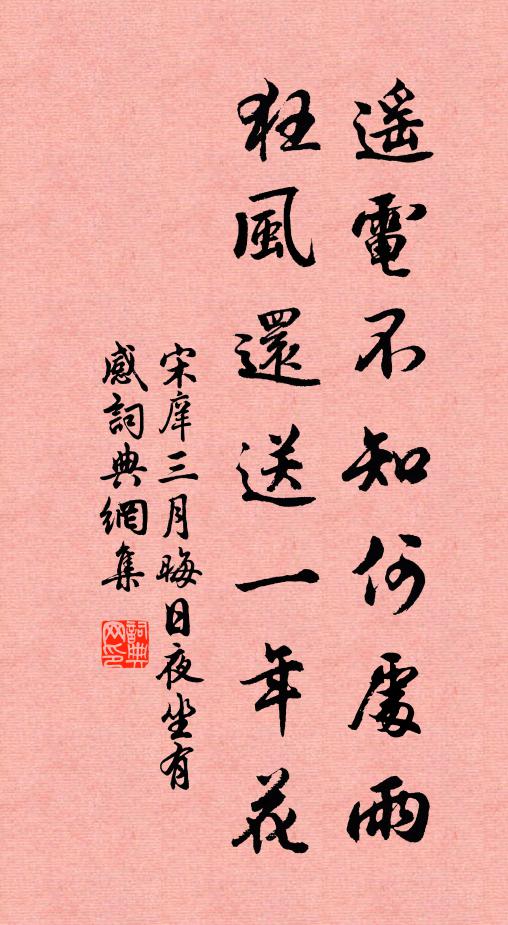 遙電不知何處雨
狂風還送一年花
宋庠三月晦日夜坐有
感詞典網集
詞典
网印